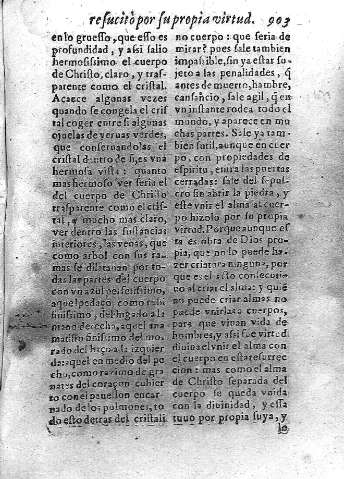 resucitò por su propia virtud. 903
en lo gruesso, que esso es
profundidad, y assi salio
hermosissimo el cuerpo
de Christo, claro, y tras-
parente como el cristal.
Acaece algunas vezes
quando se congela el cris
tal coger entre si algunas
ojuelas de yeruas verdes,
que conseruandolas el
cristal dentro de si, es vna
hermosa vista: quanto
mas hermoso ver seria el
del cuerpo de Christo
trasparente como el cris-
tal, y mucho mas claro,
ver dentro las sustancias
interiores, las venas, que
como arbol con sus ra-
mas se dilatauan por to-
das las partes del cuerpo
con vn azul
aquel pedaço como
finissimo, del higado a la
mano derecha, aquel
finissimo del mo-
rado del baço a la izquier
da: aquel en medio del pe
cho, como razimo de gra-
nates del coraçon cubier
to con el pauellon encar-
nado de los pulmones, to
do esto detras del cristali
no cuerpo: que seria de
mirar? pues sale tambien
impassible, sin ya estar su-
jeto a las penalidades, q̃
antes de muerto, hambre,
cansancio, sale agil, q̃ en
vn instante rodea todo el
mundo, y aparece en mu
chas partes. Sale ya tam-
bien sutil, aunque en cuer
po, con propiedades de
espiritu, entra las puertas
cerradas: sale del sepul-
cro sin abrir la piedra, y
este vnir el alma al cuer-
po hizolo por su propia
virtud. Porque aunque es
ta es obra de Dios pro-
pia, que no lo puede ha-
zer criatura ninguna, por
que es
al criar el alma: y quiẽ
no puede criar almas no
puede vnirlas a cuerpos,
para que viuan vida de
hombres, y assi fue virtud
diuina el vnir el alma con
el cuerpo en esta resurrec
cion: mas como el alma
de Christo separada del
cuerpo se queda vnida
con la diuinidad, y essa
tuuo por propia suya, y